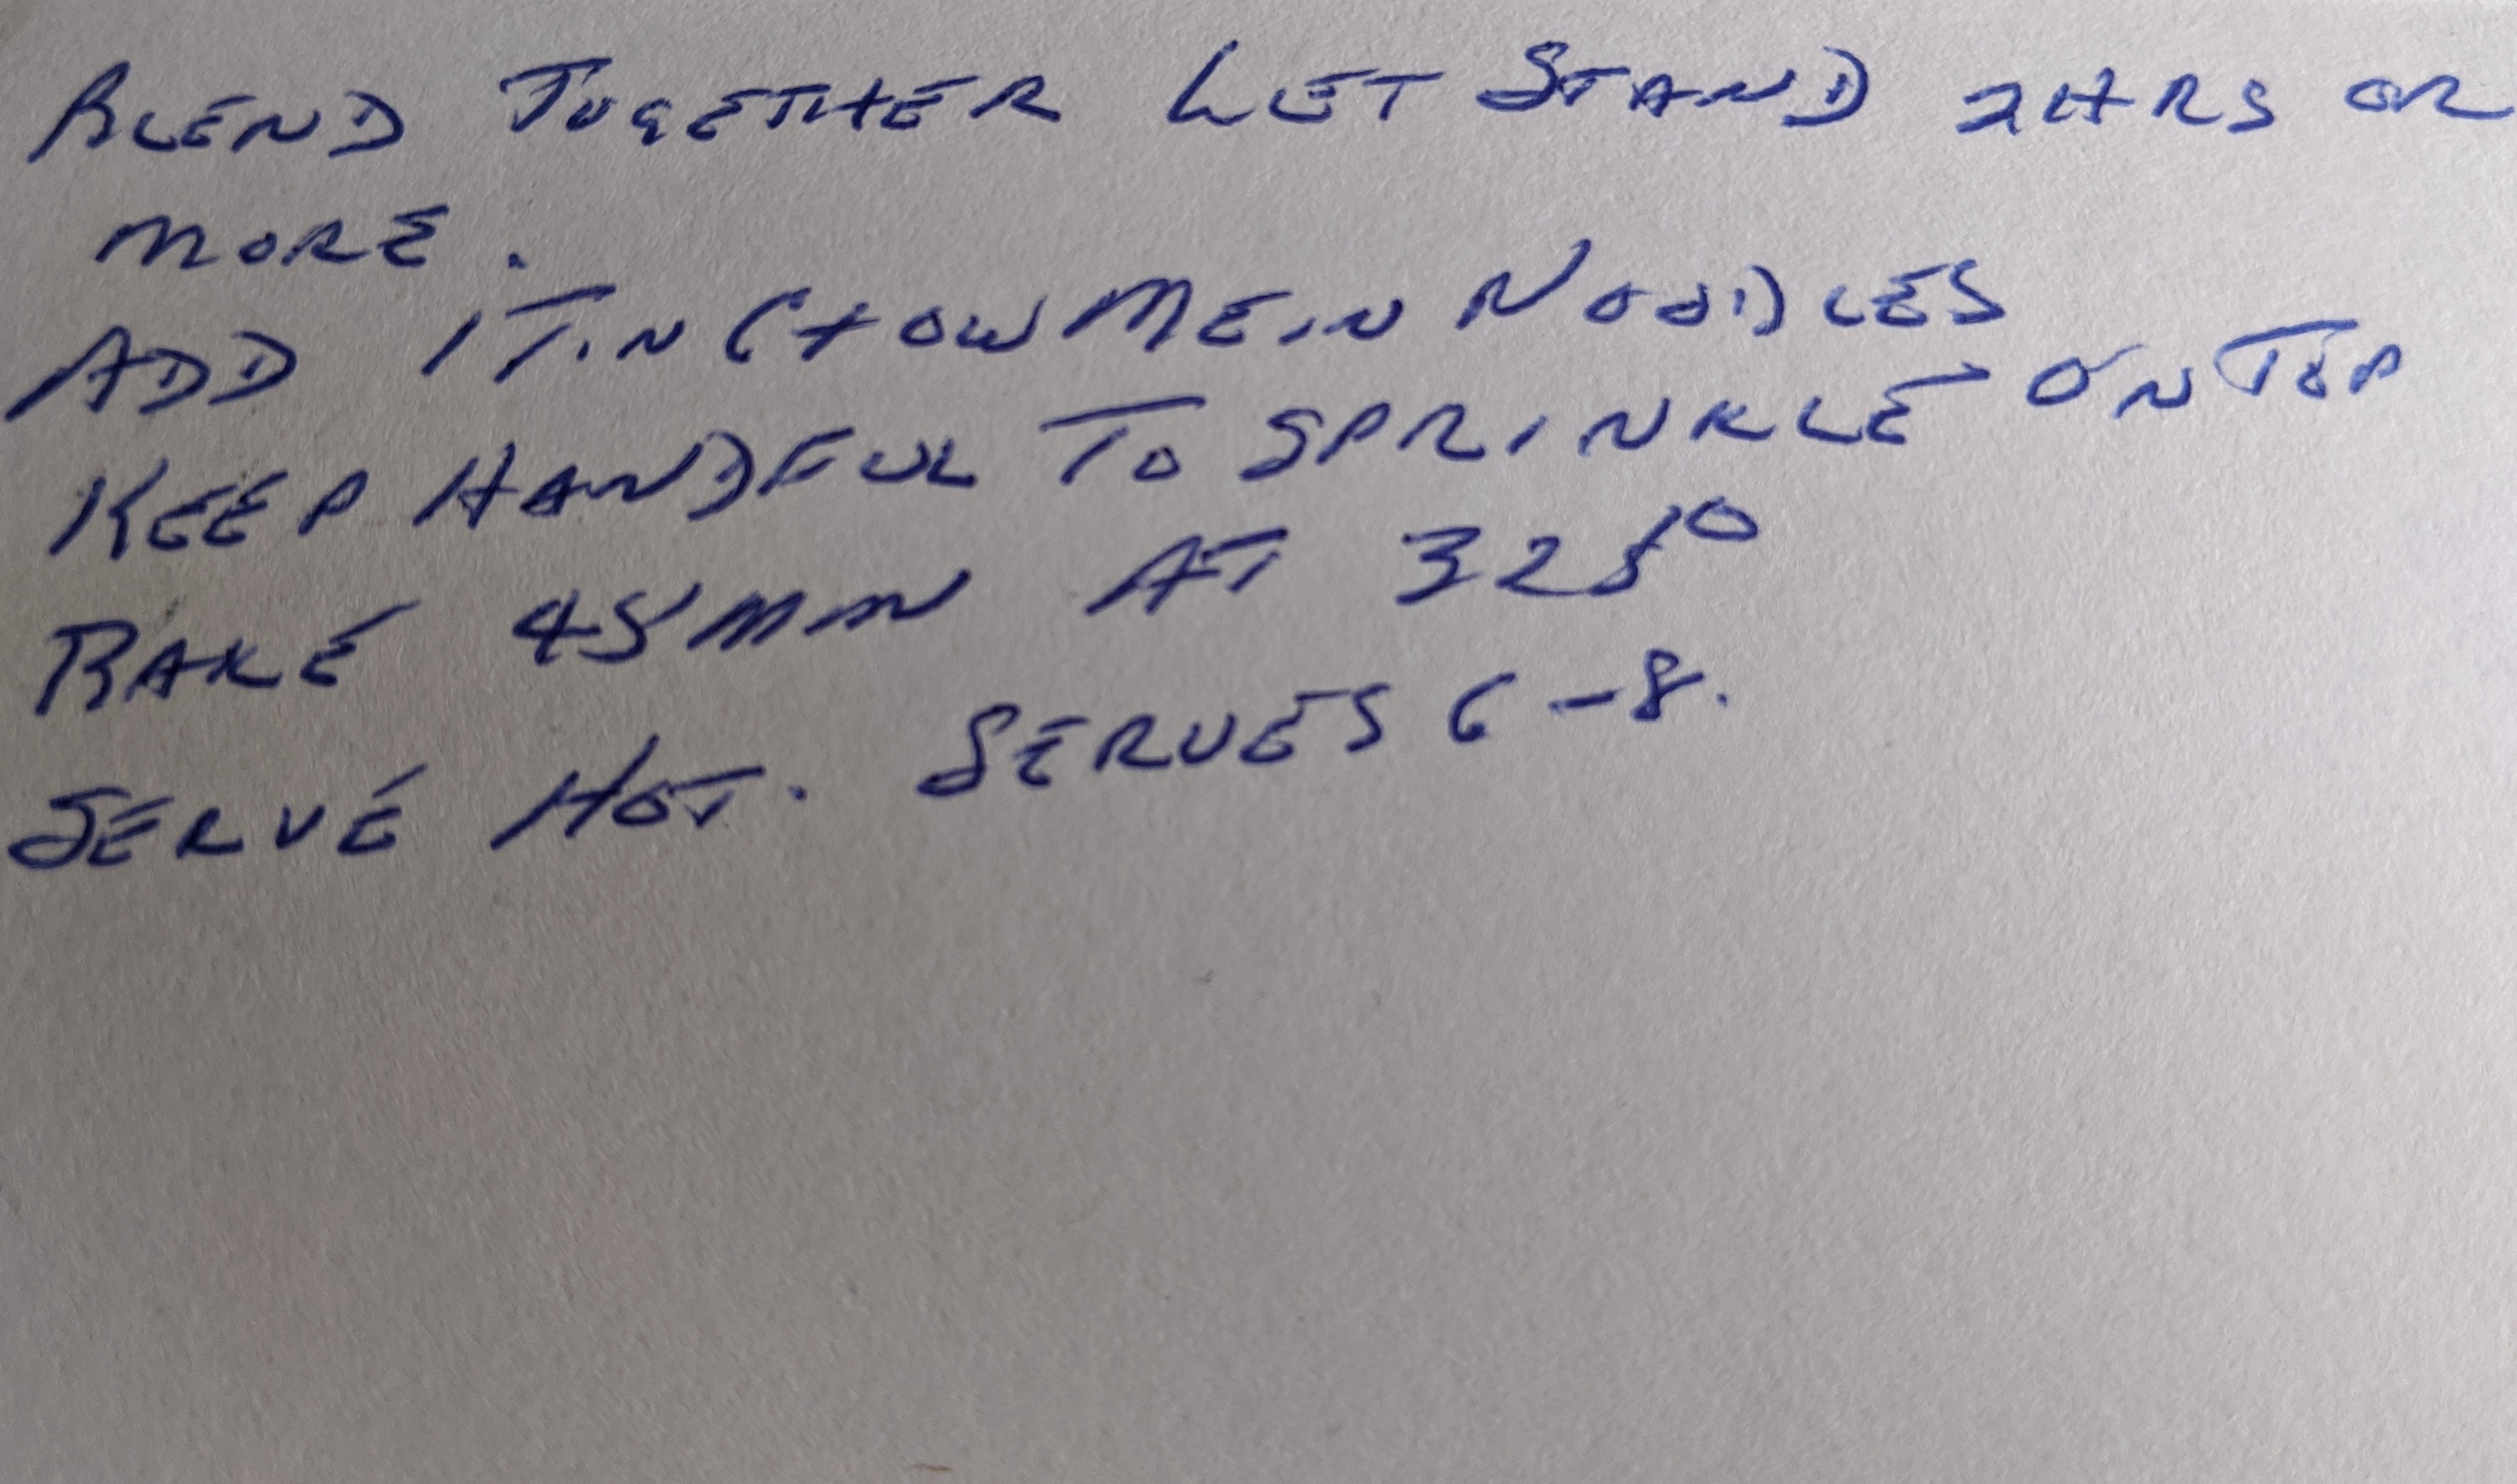 BLEND TOGETHER LET STAND 2HRS OR
MORE.
ADD 1 TIN CHOW MEIN NOODLES
KEEP HANDFUL TO SPRINKLE ON TOP
BAKE 45 MIN AT 325°
SERVE HOT. SERVES 6-8.